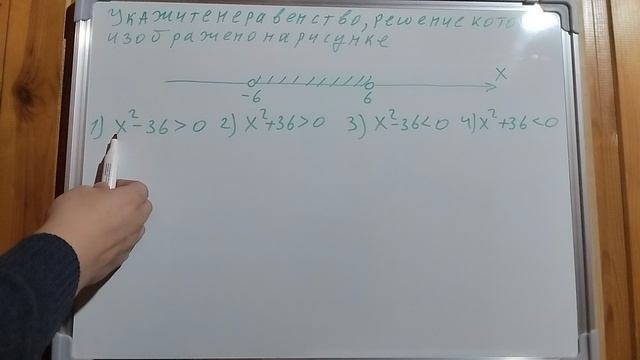 Укажите неравенство, решение
изображено на рисунке
X
-6 6
1) x²-36>0 2) x²+36>0 3) x²-36<0 4) x²+36<0